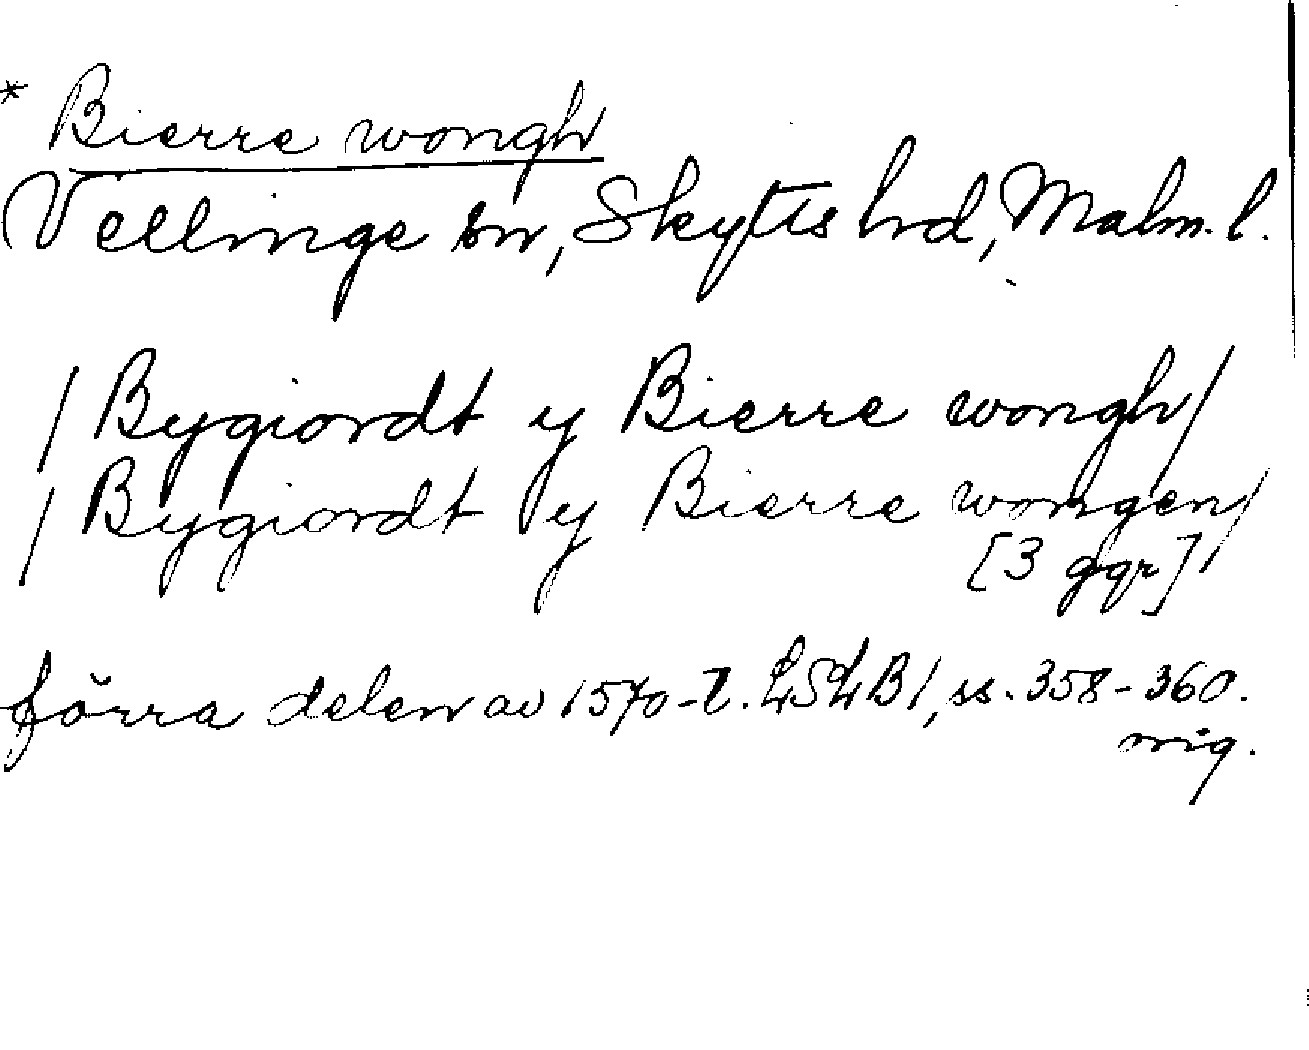 * Bierre wongh
Vellinge sn, Skytts hrd, Malm. l.
/ Bygiordt y Bierre wongh/
/ Bygiordt y Bierre wongen/
[3 ggr]
förra delen av 1570-t. LSLB1, ss. 358-360.
orig.